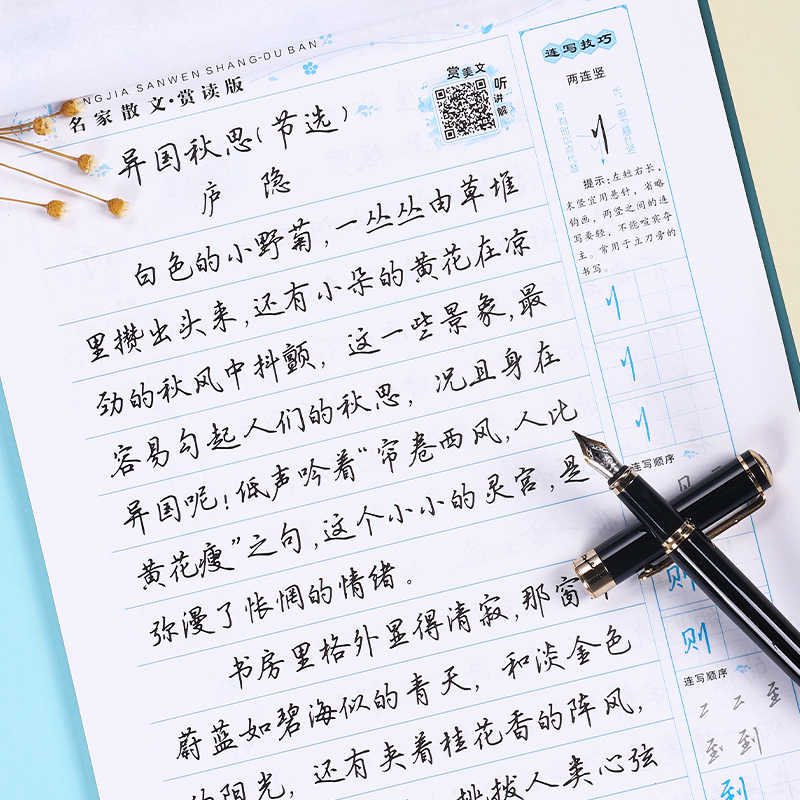 NGJIA SANWEN SHANG-DU BAN
名家散文·赏读版
赏美文
听讲解
异国秋思(节选)
庐隐
白色的小野菊,一丛丛由草堆
里攒出头来,还有小朵的黄花在凉
劲的秋风中抖颤,这一些景象,最
容易勾起人们的秋思,况且身在
异国呢!低声吟着“帘卷西风,人比
黄花瘦”之句,这个小小的灵宫,是
弥漫了怅惘的情绪。
书房里格外显得清寂,那窗
蔚蓝如碧海似的青天,和淡金色
的阳光,还有夹着桂花香的阵风,
挑拨人类心弦
连写技巧
两连竖
刂
提示:左短右长,
末竖宜用悬针,省略
钩画,两竖之间的连
写要轻,不能喧宾夺
主。常用于立刀旁的
书写。
刂
刂
刂
连写顺序
则
则
连写顺序
到